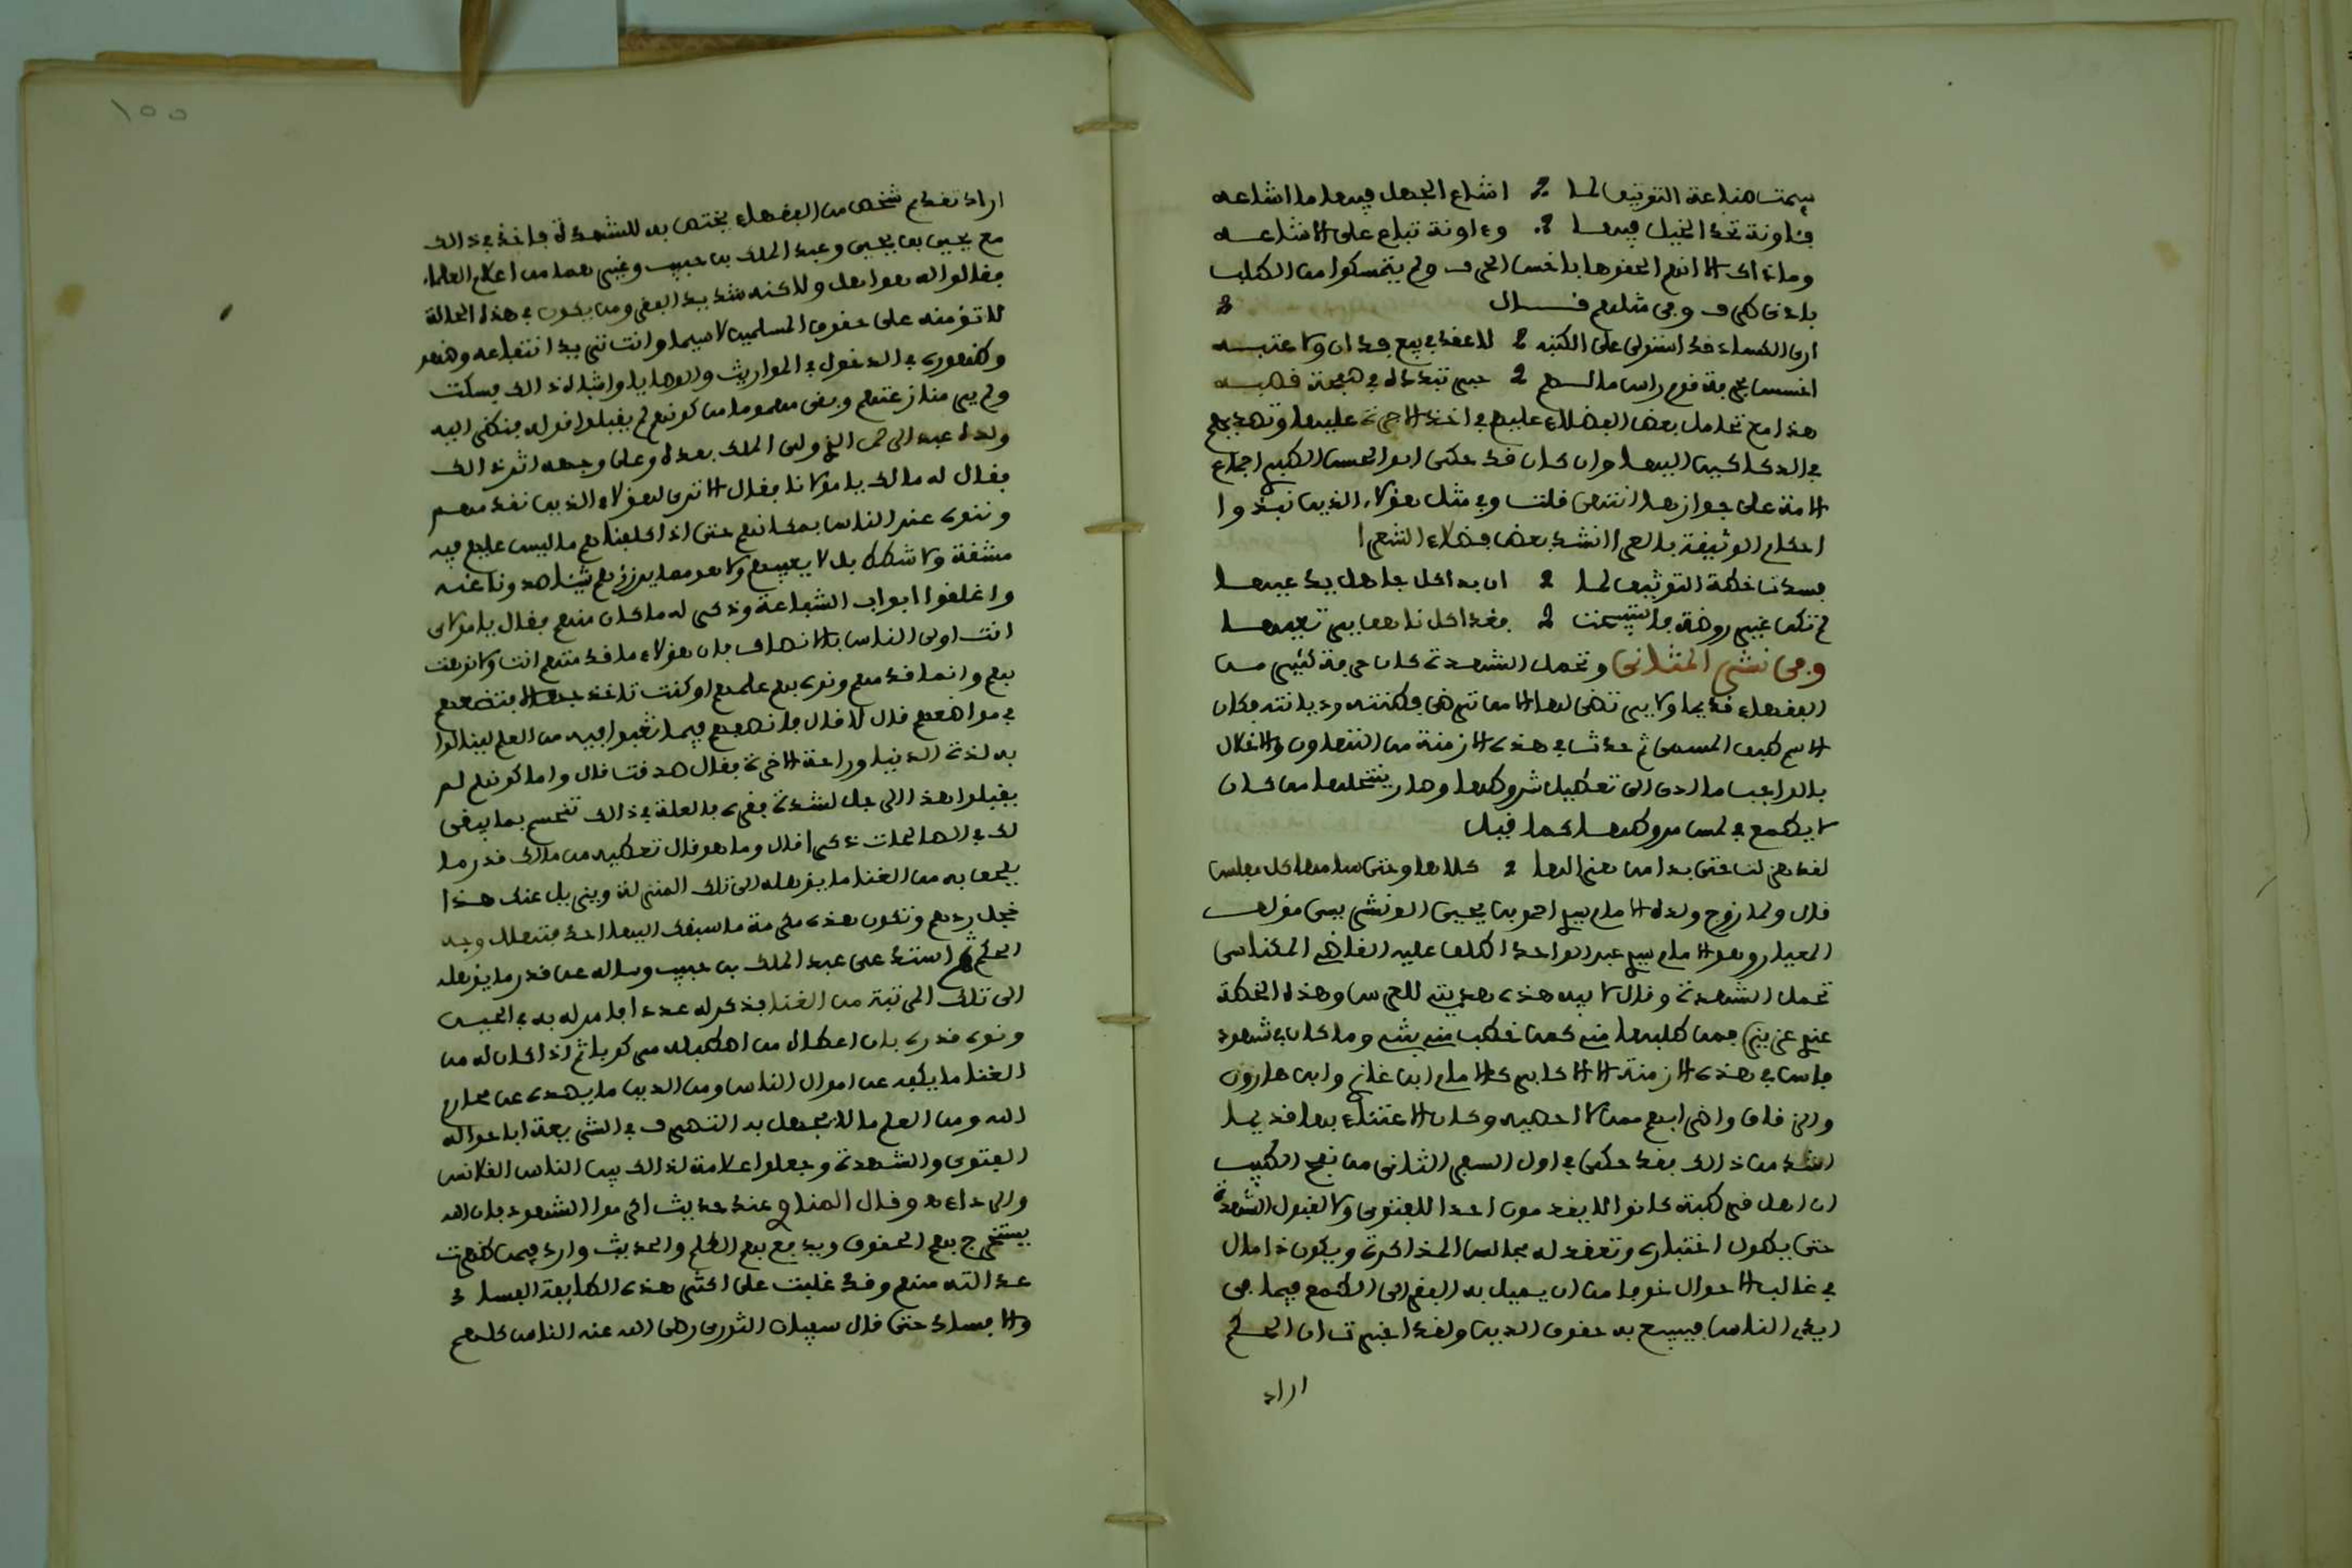 سيمت صناعة التوثيق لما اشاع الجهل فيها ما اشاعه
فئاونة تحذ الخيل فيها وءاونة تباع على الاشاعه
وما ذاك الا انهم الحقوها باخس الحرف ولم يتمسكوا من الكتاب
باذنى طرف وفى مثلهم قال
ارى الفساد قد استولى على الكتبه للاعقد فى بيع فدان ولا عتبه
اخسس بحرفة قوم راس مالهم حبر تبدده فى صفحة قصبه
هذا مع تحامل بعض الفضلاء عليهم فى اخذ الاجرة عليها وتصديهم
فى الدكاكين اليها وان كان قد حكى ابو الحسن الكبير اجماع
الامة على جوازها انتهى قلت وفى مثل هؤلاء الذين نبذوا
احكام الوثيقة بالعرا انشد بعض فضلاء الشعرا
فسدت خطة التوثيق لما ان بدا كل جاهل يدعيها
لم تكن غير روضة فاستبيحت فغدا كل ناهق يرتعيها
وفى نشر المثانى وتحمل الشهدة كان حرفة كثير من
الفقهاء قديما ولا يرتضى لها الا من ترضى فطنته وديانته فكان
الاسم طبق المسمى ثم حدث فى هذه الازمنة من التهاون والاخلال
بالواجب ما ادى الى تعطيل شروطها وصار ينتحلها من كان
لا يطمع فى لمس مروطها كما قيل
لقد هزلت حتى بدا من هزالها كلاها وحتى سامها كل مفلس
قال ولما زوج ولده الامام سيدى احمد بن يحيى الونشريسى مؤلف
المعيار وهو الامام سيدى عبد الواحد اطلق عليه القاضى المكناسى
تحمل الشهدة وقال لابيه هذه هديتى للعرس وهذه الخطة
عزيزة فمن طلبها كمن خطب منه بنته وما كان شهود
فاس فى هذه الازمنة الا اكابر كالامام ابن غازى وابن هارون
والزقاق واضرابهم ممن لا احصيه وكان الاعتناء بها قديما
اشد من ذالك فقد حكى فى اول السفر الثانى من نفح الطيب
ان اهل قرطبة كانوا لا يقدمون احدا للفتوى ولا لقبول الشهدة
حتى يطول اختباره وتعقد له مجالس المذاكرة ويكون ذا مال
فى غالب الاحوال خوفا من ان يميل به الفقر الى الطمع فيما فى
ايدى الناس فيبيع به حقوق الدين ولقد اخبرت ان الحكم
اراد
١٥٥
اراد تقديم شخص من الفقهاء يختص به للشهدة فاخذ فى ذالك
مع يحيى بن يحيى وعبد الملك بن حبيب وغيرهما من اعلام العلماء
فقالوا له هو اهل ولاكنه شديد الفقر ومن يكون فى هذه الحالة
لا تؤمنه على حقوق المسلمين لا سيما وانت تريد انتفاعه وهو
وظهوره فى الدخول فى المواريث والوصايا واشباه ذالك فسكت
ولم ير منازعتهم وبقى مهموما من كونهم لم يقبلوا قوله فنظر اليه
ولده عبد الرحمن الذى ولى الملك بعده وعلى وجهه اثر ذالك
فقال له مالك يا مولانا فقال الا ترى لهؤلاء الذين نقدمهم
وننوه عند الناس بمكانهم حتى اذا كلفناهم ما ليس عليهم فيه
مشقة ولا شطط بل لا يعيبهم ولا هو مما يرزؤهم شيئا صدونا عنه
واغلقوا ابواب الشفاعة وذكر له ما كان منهم فقال يا مولاى
انت اولى الناس بالانصاف فان هؤلاء ما قدمتهم انت ولا نوهت
بهم وانما قدمهم ونوه بهم علمهم او كنت تاخذ جهالا فتضعهم
فى مواضعهم قال لا قال فانصفهم فيما تعبوا فيه من العلم لينالوا
به لذة الدنيا وراحة الاخرة فقال صدقت قال واما كونهم لم
يقبلوا هذا الرجل لشدة فقره فالعلة فى ذالك تنحسم بما يبقى
لك فى الصالحات ذكرا قال وما هو قال تعطيه من مالك قدر ما
يلحق به من الغنا ما يؤهله الى تلك المنزلة ويزيل عنك هذا
خجل ردهم وتكون هذه مكرمة ما سبقك اليها احد فتهلل وجه
الحكم ثم استدعى عبد الملك بن حبيب وساله عن قدر ما يؤهله
الى تلك المرتبة من الغنا فذكر له عددا فامر له به فى الحين
ونوه قدره بان اعطاه من اصطبله مركوبا ثم اذا كان له من
الغنا ما يكفه عن اموال الناس ومن الدين ما يصده عن محارم
الله ومن العلم ما لا يجهل به التصرف فى الشريعة اباحوا له
الفتوى والشهدة وجعلوا علامة لذالك بين الناس القلانس
والرداء وقال المناوى عند حديث اكرموا الشهود فان الله
يستخرج بهم الحقوق ويدفع بهم الظلم والحديث وارد فيمن ظهرت
عدالته منهم وقد غلبت على اكثر هذه الطايفة الفساد
والافساد حتى قال سفيان الثورى رضى الله عنه الناس كلهم